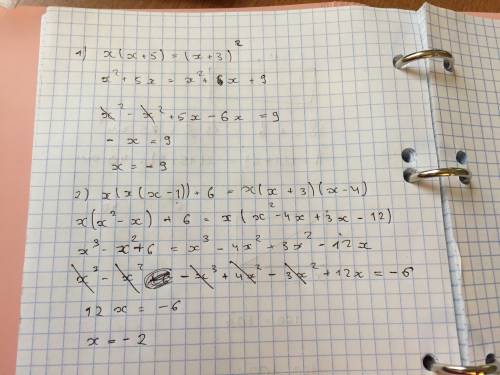 1) x(x+5) = (x+3)²
x²+5x = x²+6x+9
x² - x² +5x - 6x = 9
- x = 9
x = -9
2) x(x(x-1))+6 = x(x+3)(x-4)
x(x²-x)+6 = x(x²-4x+3x-12)
x³-x²+6 = x³-4x²+3x²-12x
x³ - x² - x³ + 4x² - 3x² + 12x = -6
12x = -6
x = -2